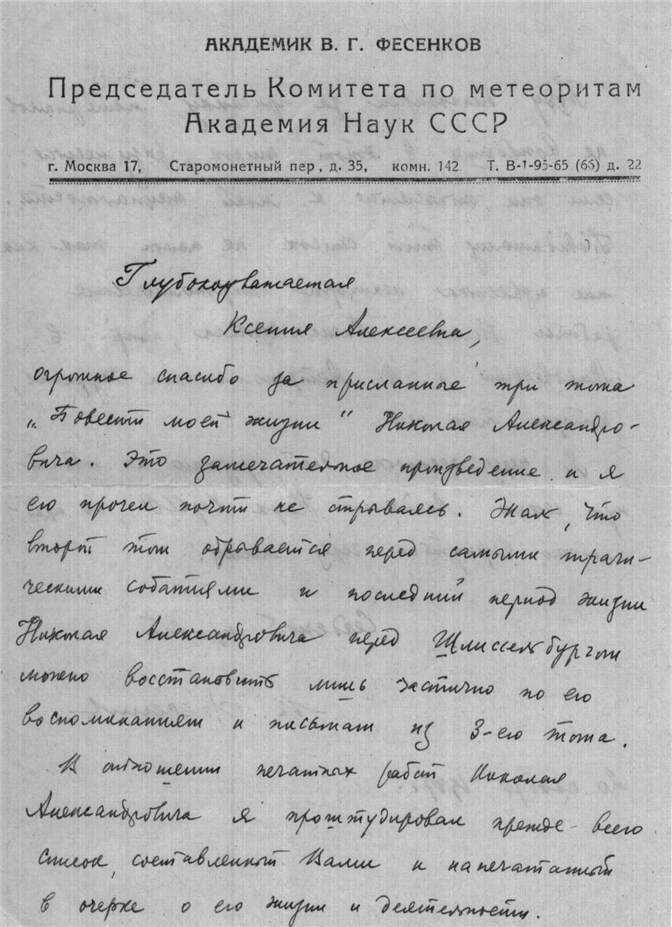 АКАДЕМИК В. Г. ФЕСЕНКОВ
Председатель Комитета по метеоритам
Академия Наук СССР
г. Москва 17, Старомонетный пер, д. 35, комн. 142 Т. В-1-95-65 (66) д. 22
Глубокоуважаемая
Ксения Алексеевна,
огромное спасибо за присланные три тома
„Повести моей жизни" Николая Александро-
вича. Это замечательное произведение и я
его прочел почти не отрываясь. Жаль, что
второй том обрывается перед самыми траги-
ческими событиями и последний период жизни
Николая Александровича перед Шлиссельбургом
можно восстановить лишь частично по его
воспоминаниям и письмам из 3-его тома.
В отношении печатных работ Николая
Александровича я проштудировал прежде всего
список, составленный Вами и напечатанный
в очерке о его жизни и деятельности.